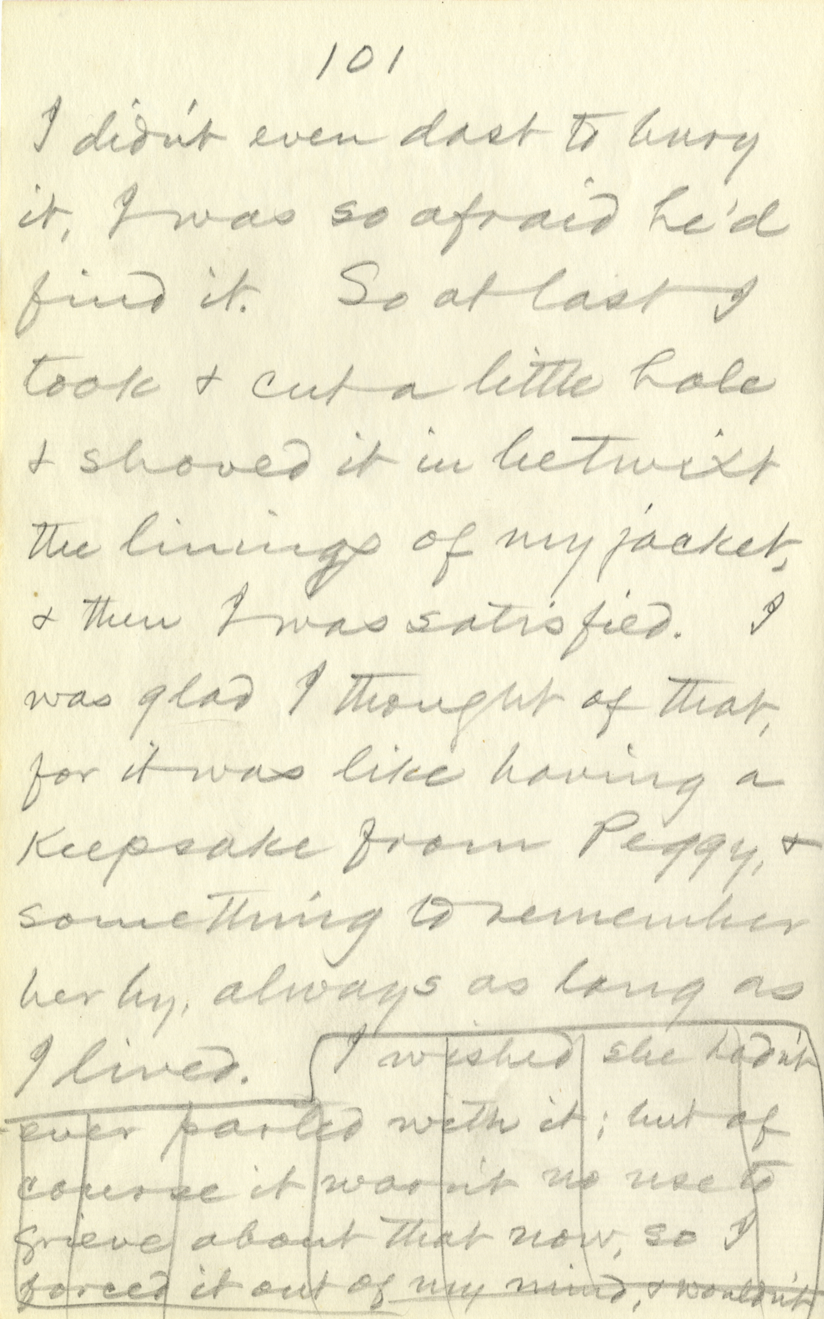 101
I didn't even dast to bury
it, I was so afraid he'd
find it. So at last I
took & cut a little hole
& shoved it in betwixt
the linings of my jacket,
& then I was satisfied. I
was glad I thought of that,
for it was like having a
keepsake from Peggy, &
something to remember
her by, always as long as
I lived. I wished she hadn't
ever parted with it; but of
course it warn't no use to
grieve about that now, so I
forced it out of my mind, & wouldn't